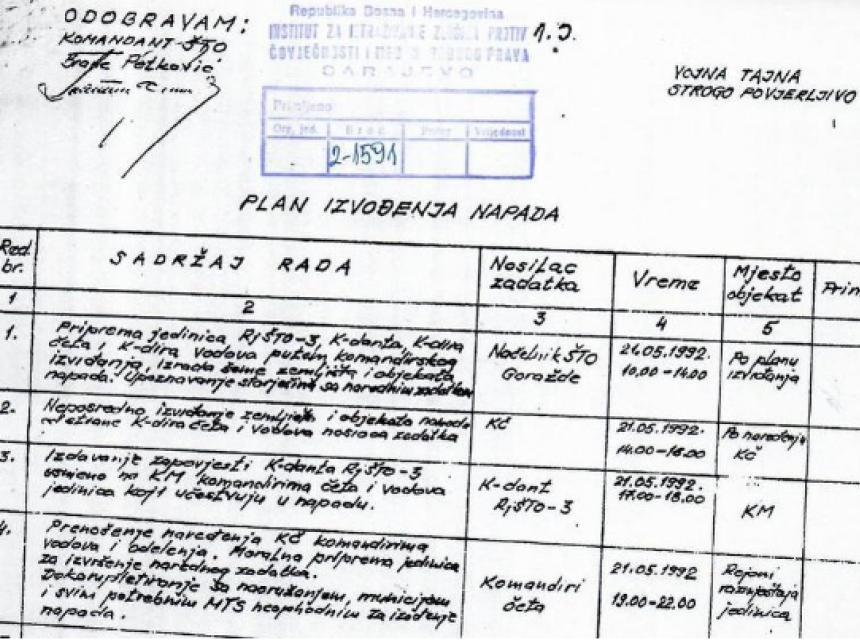 ODOBRAVAM:
KOMANDANT ŠTO
Petković
Republika Bosna i Hercegovina
INSTITUT ZA ISTRAŽIVANJE ZLOČINA PROTIV
ČOVJEČNOSTI I MEĐUNARODNOG PRAVA
SARAJEVO
Primljeno
Org. jed. Broj Prilog Vrijednost
2-1591
VOJNA TAJNA
STROGO POVJERLJIVO
PLAN IZVOĐENJA NAPADA
Red. br. SADRŽAJ RADA Nosilac zadatka Vreme Mjesto objekat Prim
1 2 3 4 5
1. Priprema jedinica, RjŠTO-3, K-danta, K-dira
četa i K-dira vodova putem komandirskog
izviđanja, izrada šeme zemljišta i objekata
napada. Upoznavanje starješina sa narednim zadatkom
Načelnik ŠTO
Goražde
21.05.1992.
10,00-14,00
Po planu
izviđanja
2. Neposredno izviđanje zemljišta i objekata napada
K-dira četa i vodova nosioca zadatka
KČ
21.05.1992.
14.00-16.00
Po naređenju
KČ
3. Izdavanje zapovjesti K-danta RjŠTO-3
usmeno na KM komandirima četa i vodova
jedinica koji učestvuju u napadu.
K-dant
RjŠTO-3
21.05.1992.
17.00-18.00
KM
4. Prenošenje naređenja KČ komandirima
vodova i odelenja. Moralna priprema jedinica
za izvršenje narednog zadatka.
Dekompletiranje sa naoružanjem, municijom
i svim potrebnim MTS neophodnim za izvođenje
napada.
Komandiri
četa
21.05.1992
19.00-22.00
Rejoni
razmještaja
jedinica